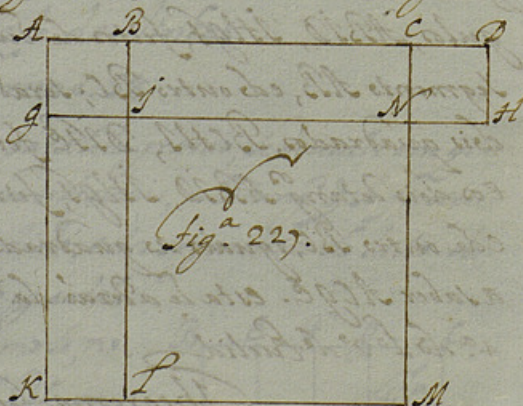 A B C D
g J N H
Fig.ª 227.
K P M